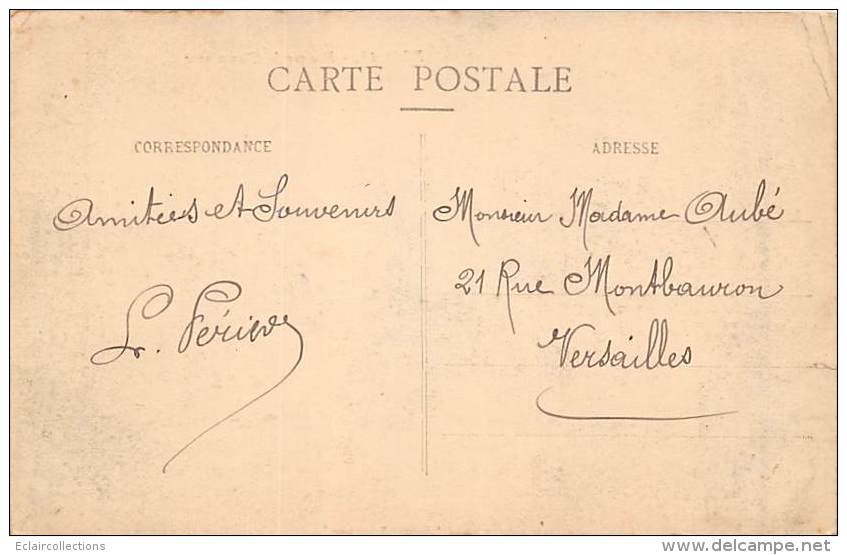 CARTE POSTALE
CORRESPONDANCE
Amitiés et Souvenirs
L.
ADRESSE
Monsieur Madame Aubé
21 Rue Montbauron
Versailles
Eclaircollections
www.delcampe.net